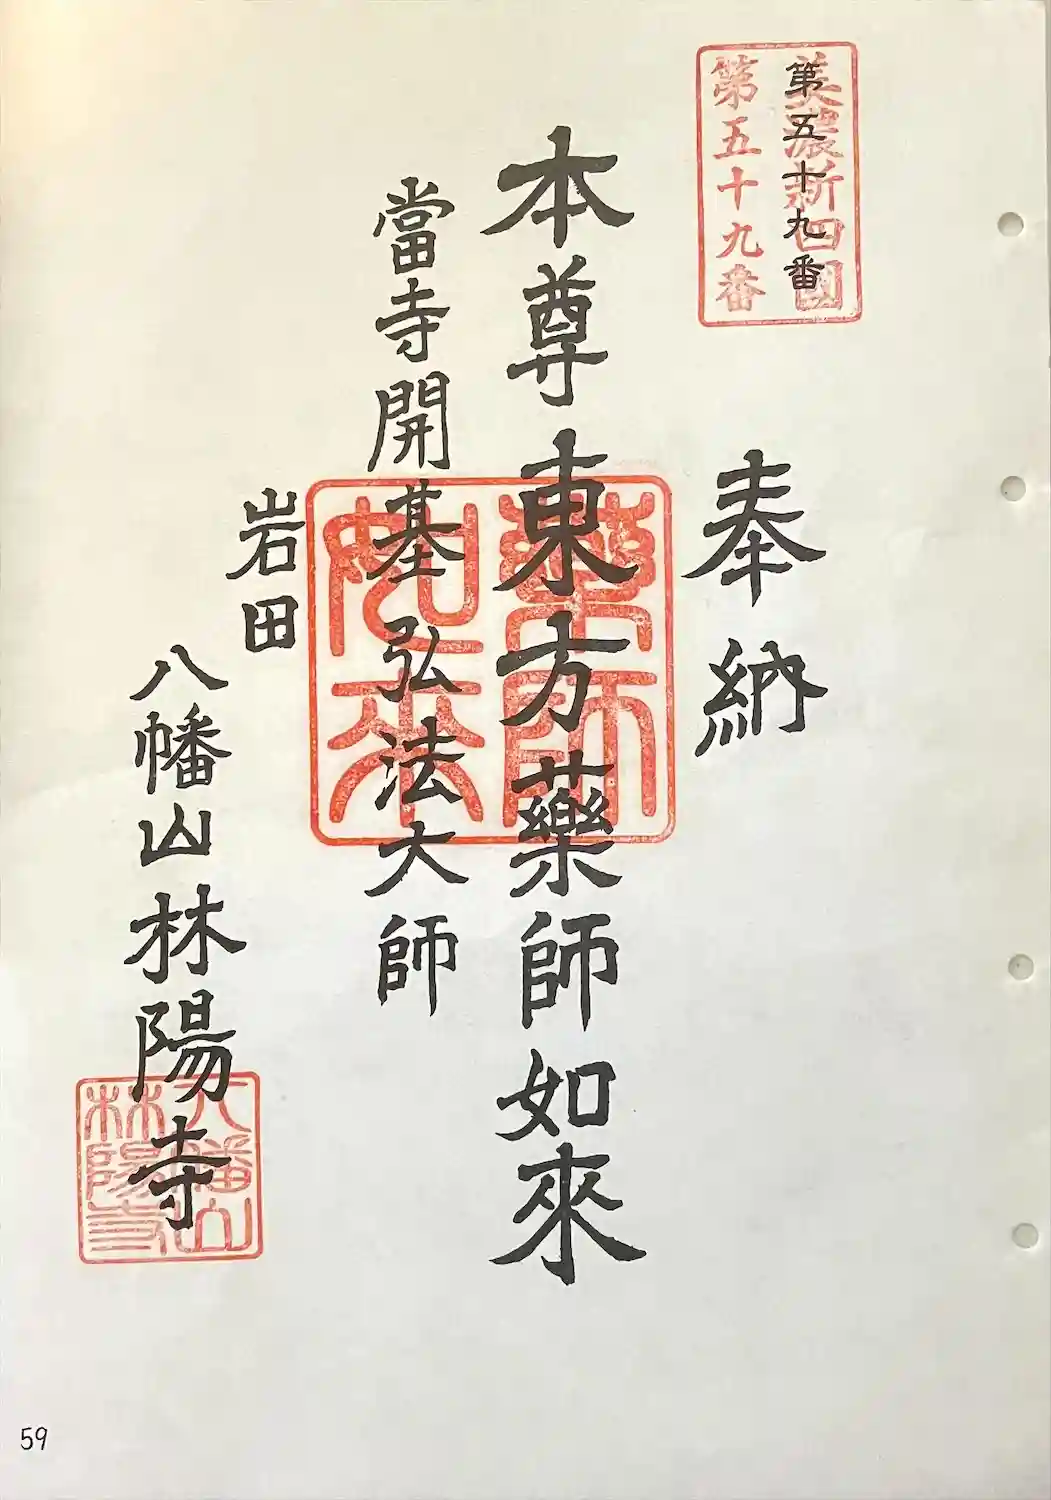 美濃新四国
第五十九番
第五十九番
奉納
本尊東方藥師如來
當寺開基弘法大師
藥師
如来
岩田
八幡山林陽寺
八幡山
林陽寺
59